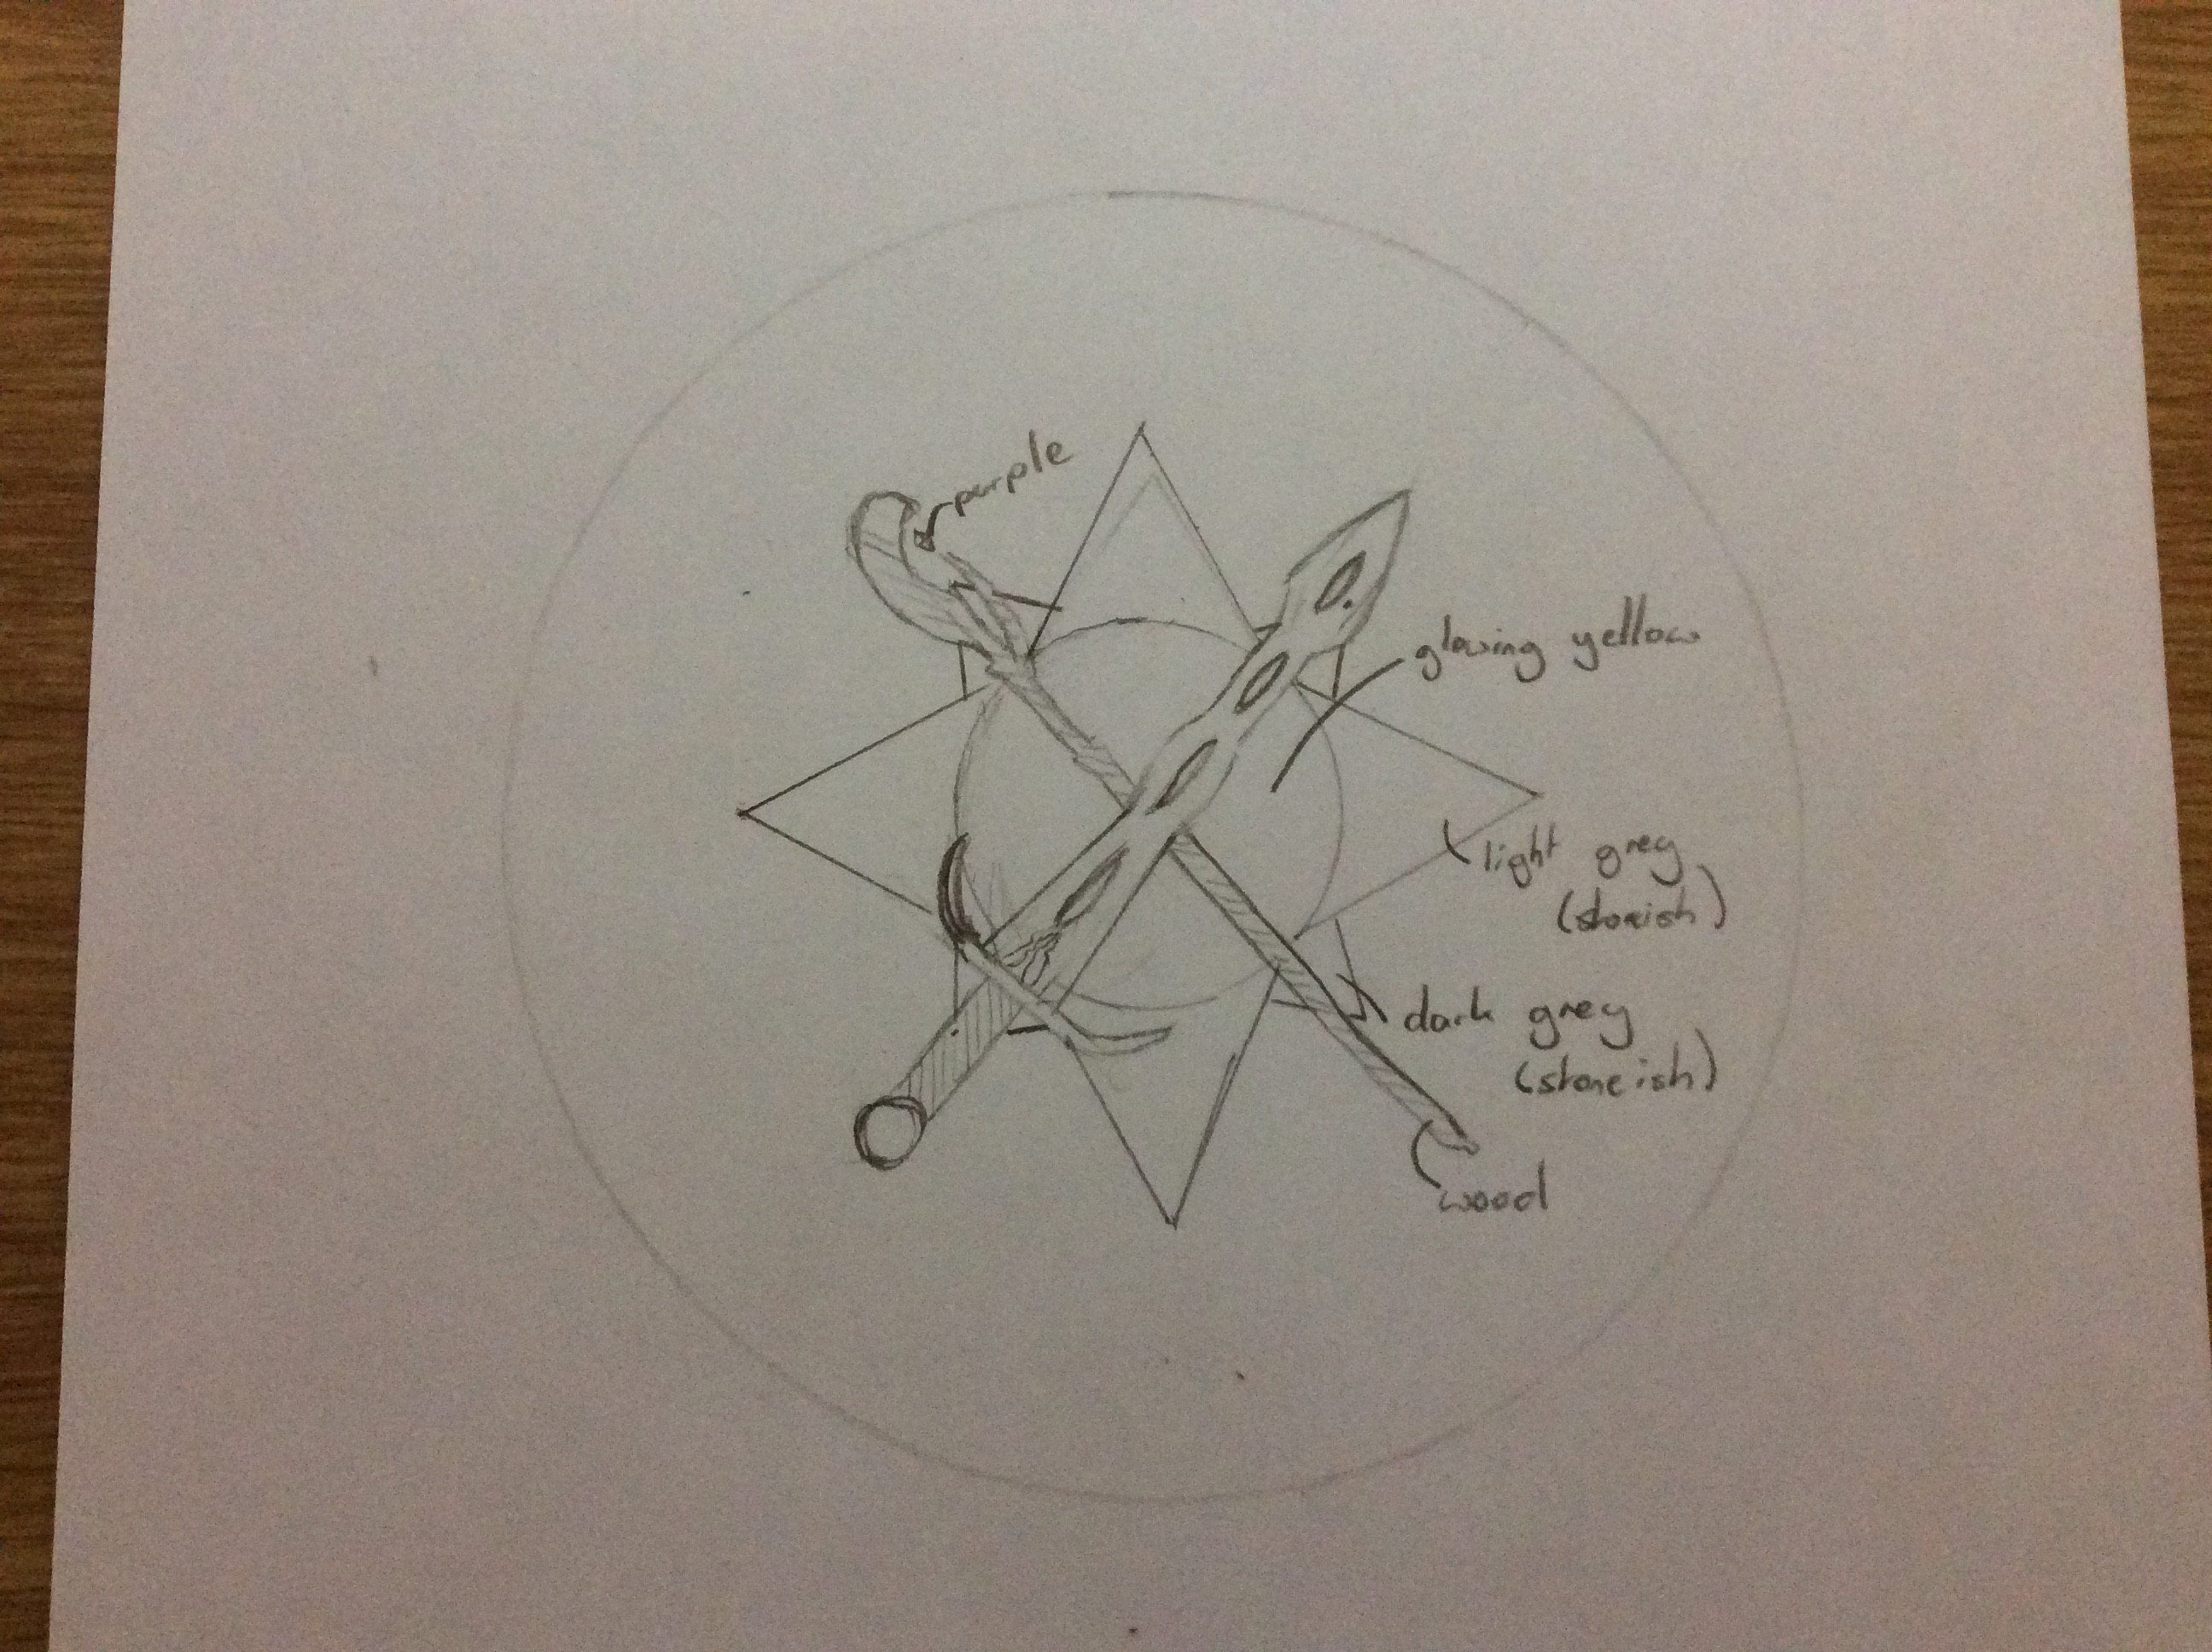 purple
glowing yellow
light grey
(stoneish)
dark grey
(stoneish)
wood